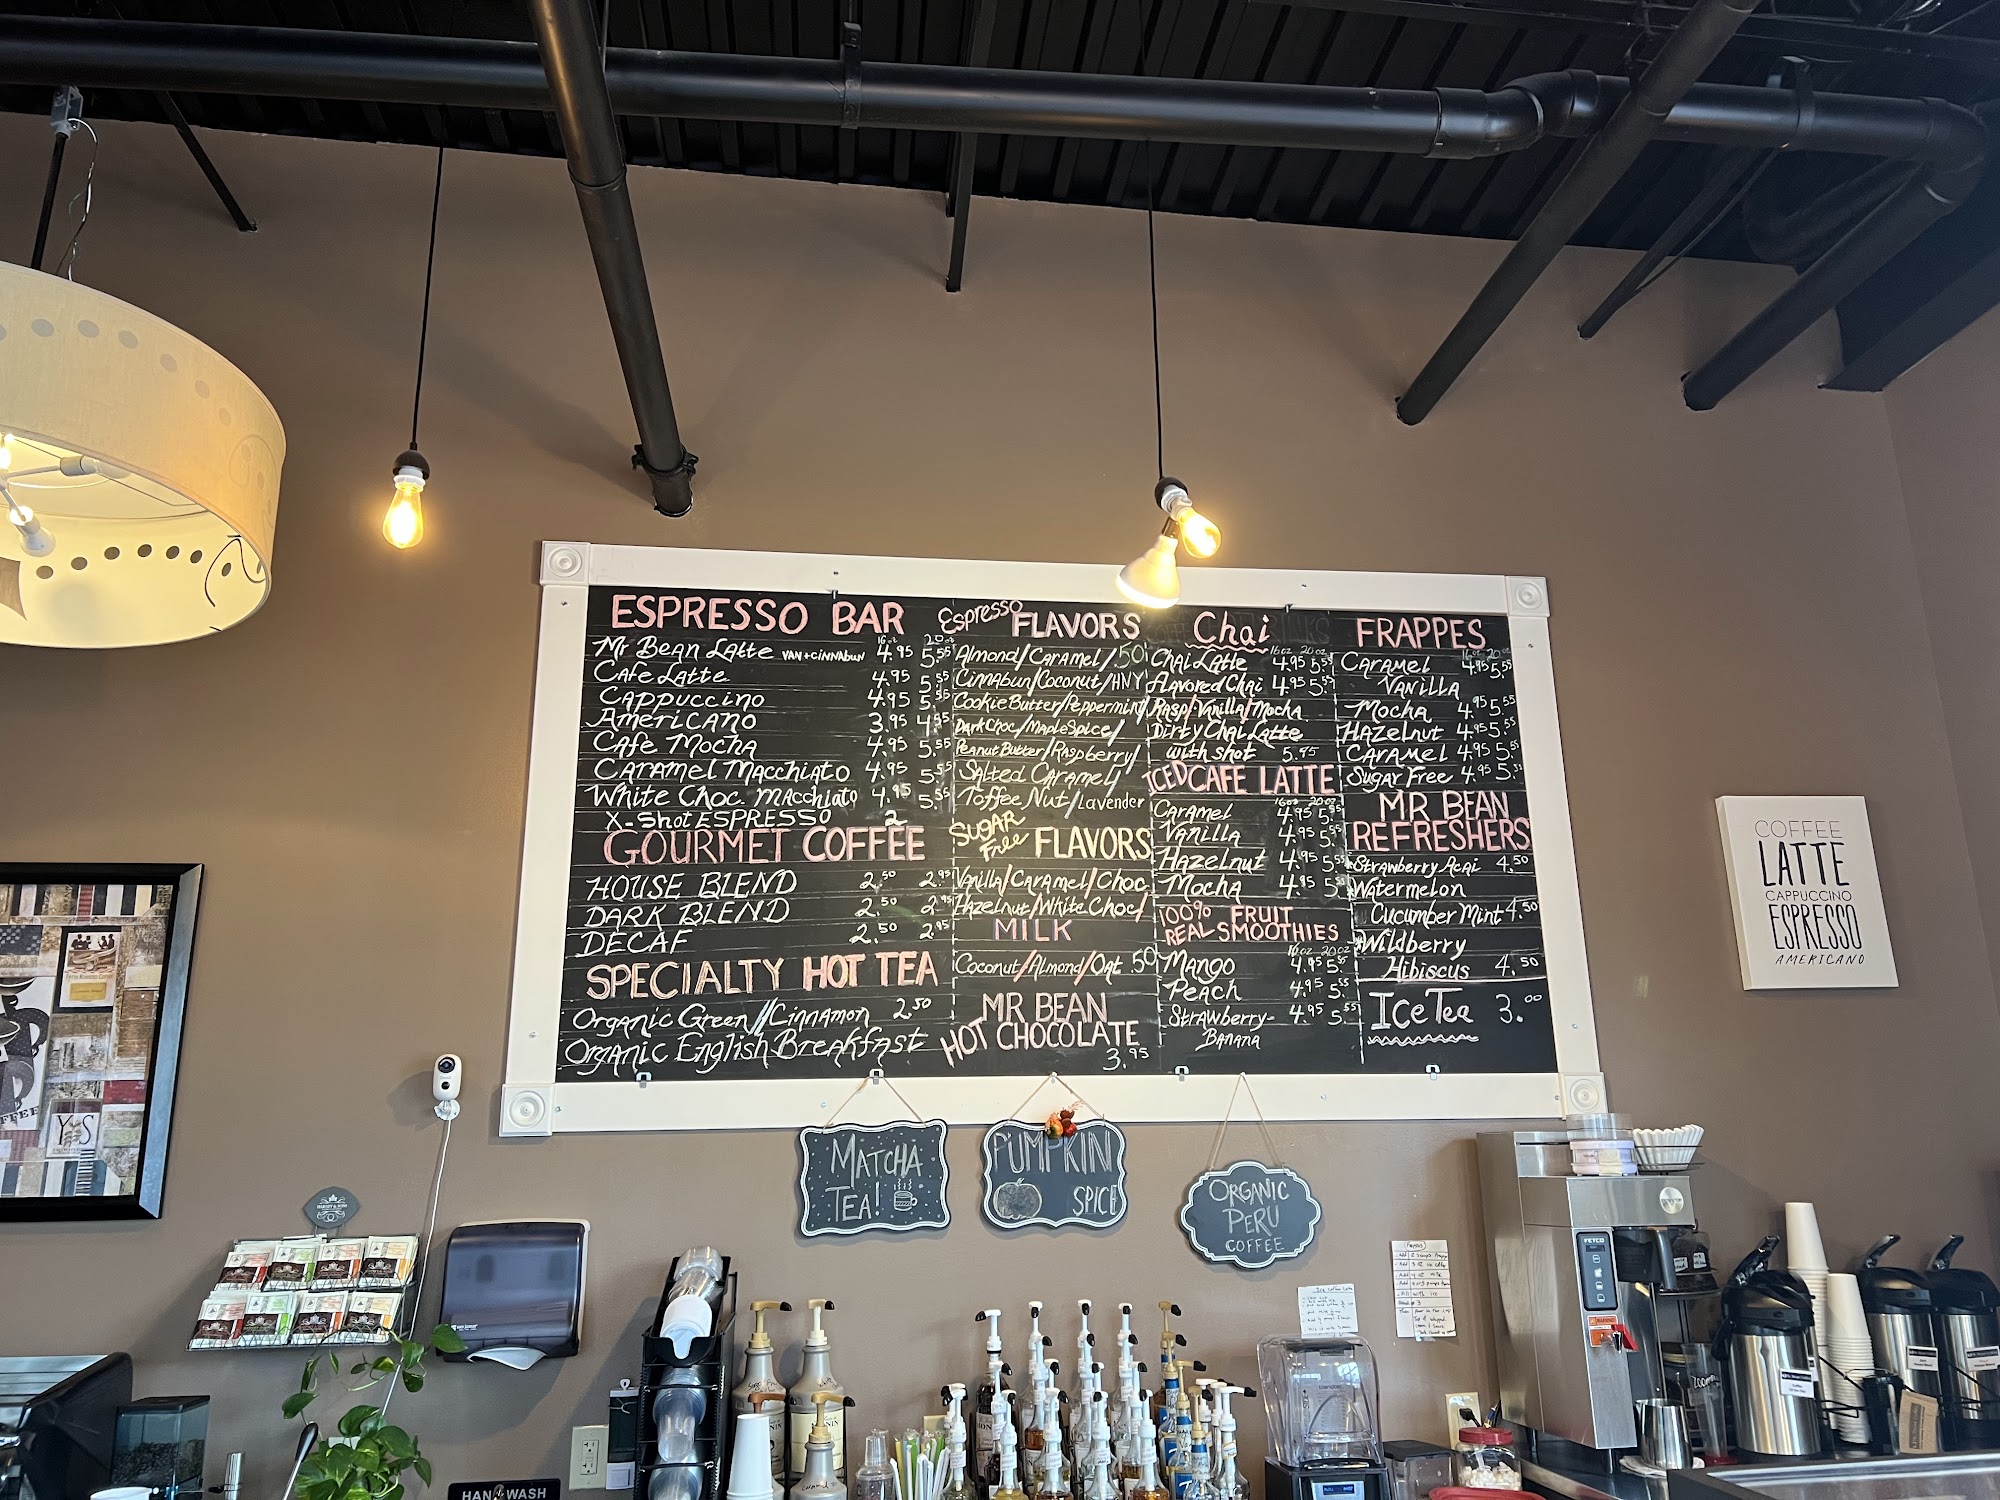 ESPRESSO BAR
16oz 20oz
Mr Bean Latte VAN+CiNNAbuN 4.95 5.55
Cafe Latte 4.95 5.55
CAPPUCCiNO 4.95 5.55
AmeriCANO 3.95 4.55
CAfe MochA 4.95 5.55
CARAmel MAcchiAtO 4.95 5.55
White Choc. MAcchiAtO 4.95 5.55
X-Shot ESPRESSO 2
GOURMET COFFEE
HOUSE BLEND 2.50 2.95
DARK BLEND 2.50 2.95
DECAF 2.50 2.95
SPECIALTY HOT TEA
OrgANic Green//CiNNAmoN 2.50
OrgANic English BreAkfAst
Espresso FLAVORS
Almond/CArAmel/.50
CiNNAbuN/Coconut/HNY
Cookie Butter/Peppermint/
DArk Choc/MApleSpice/
PeANut Butter/RAspberry/
SAlted CArAmel/
Toffee Nut/LAvender
SUGAR Free FLAVORS
VAnillA/CArAmel/Choc
HAzelnut/White Choc/
MILK
Coconut/Almond/OAt .50
MR BEAN
HOT CHOCOLATE
3.95
Chai
16oz 20oz
ChAi LAtte 4.95 5.55
flAvored ChAi 4.95 5.55
RAsp/VAnillA/MochA
Dirty ChAi LAtte
with shot 5.95
ICED CAFE LATTE
16oz 20oz
CArAmel 4.95 5.55
VAnillA 4.95 5.55
HAzelnut 4.95 5.55
MochA 4.95 5.55
100% FRUIT
REAL SMOOTHIES
16oz 20oz
MANgo 4.95 5.55
PeAch 4.95 5.55
StrAwberry- 4.95 5.55
BANANA
FRAPPES
16oz 20oz
CARAmel 4.95 5.55
VANillA
MochA 4.95 5.55
HAzelNut 4.95 5.55
CARAmel 4.95 5.55
SugAr Free 4.95 5.55
MR BEAN
REFRESHERS
StrAwberry AcAi 4.50
WAtermelon
Cucumber Mint 4.50
*Wildberry
Hibiscus 4.50
Ice Tea 3.00
COFFEE
LATTE
CAPPUCCINO
ESPRESSO
AMERICANO
MATCHA
TEA!
PUMPKIN
SPICE
ORGANIC
PERU
COFFEE
FETCO
Y S
HAND WASH